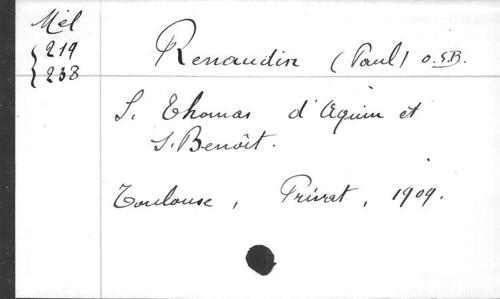 Mél
219
238
Renaudin (Paul) O.S.B.
S. Thomas d'Aquin et
S. Benoît.
Toulouse, Privat, 1909.